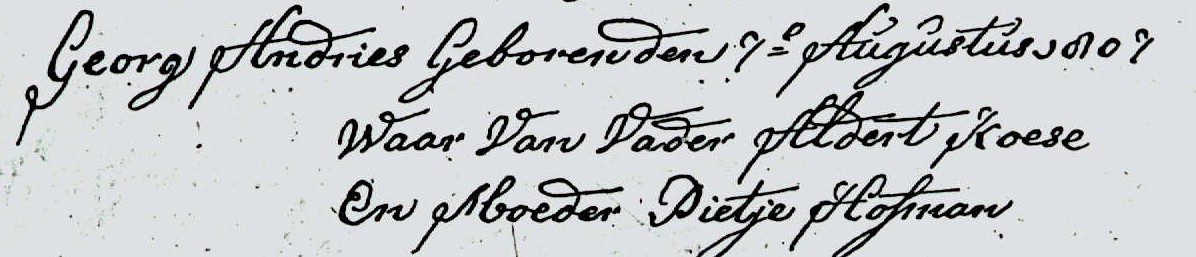 Georg Andries Geboren den 7e Augustus 1807
Waar Van Vader Aldert Koese
En Moeder Pietje Hofman